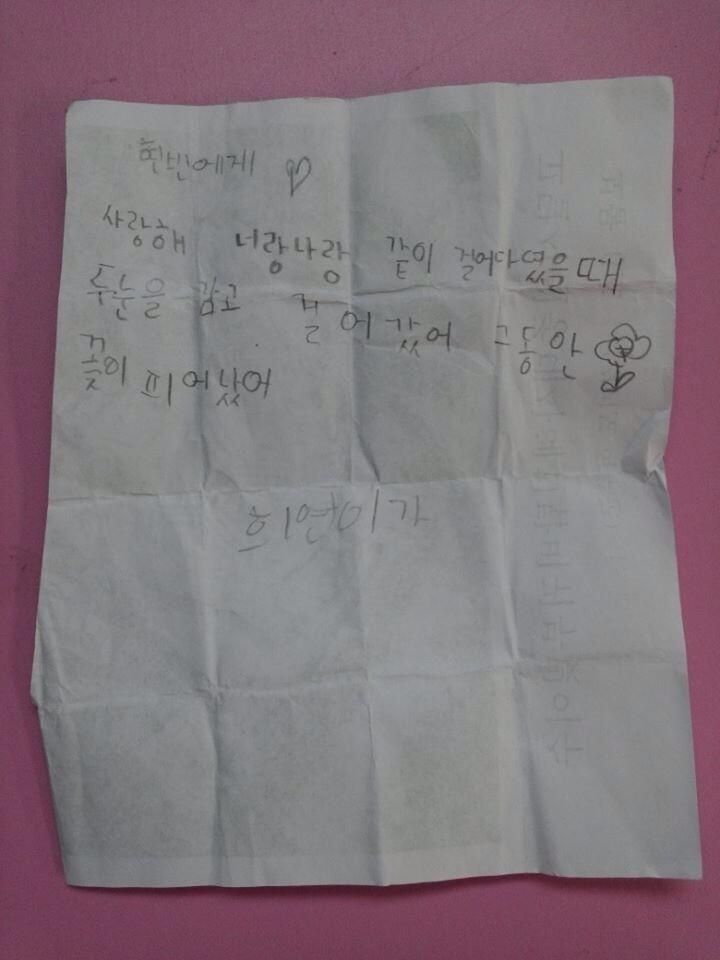 현빈에게
사랑해 너랑나랑 같이 걸어다였을때
두눈을 감고 걸어갔어 그동안
꽃이 피어났어
희연이가